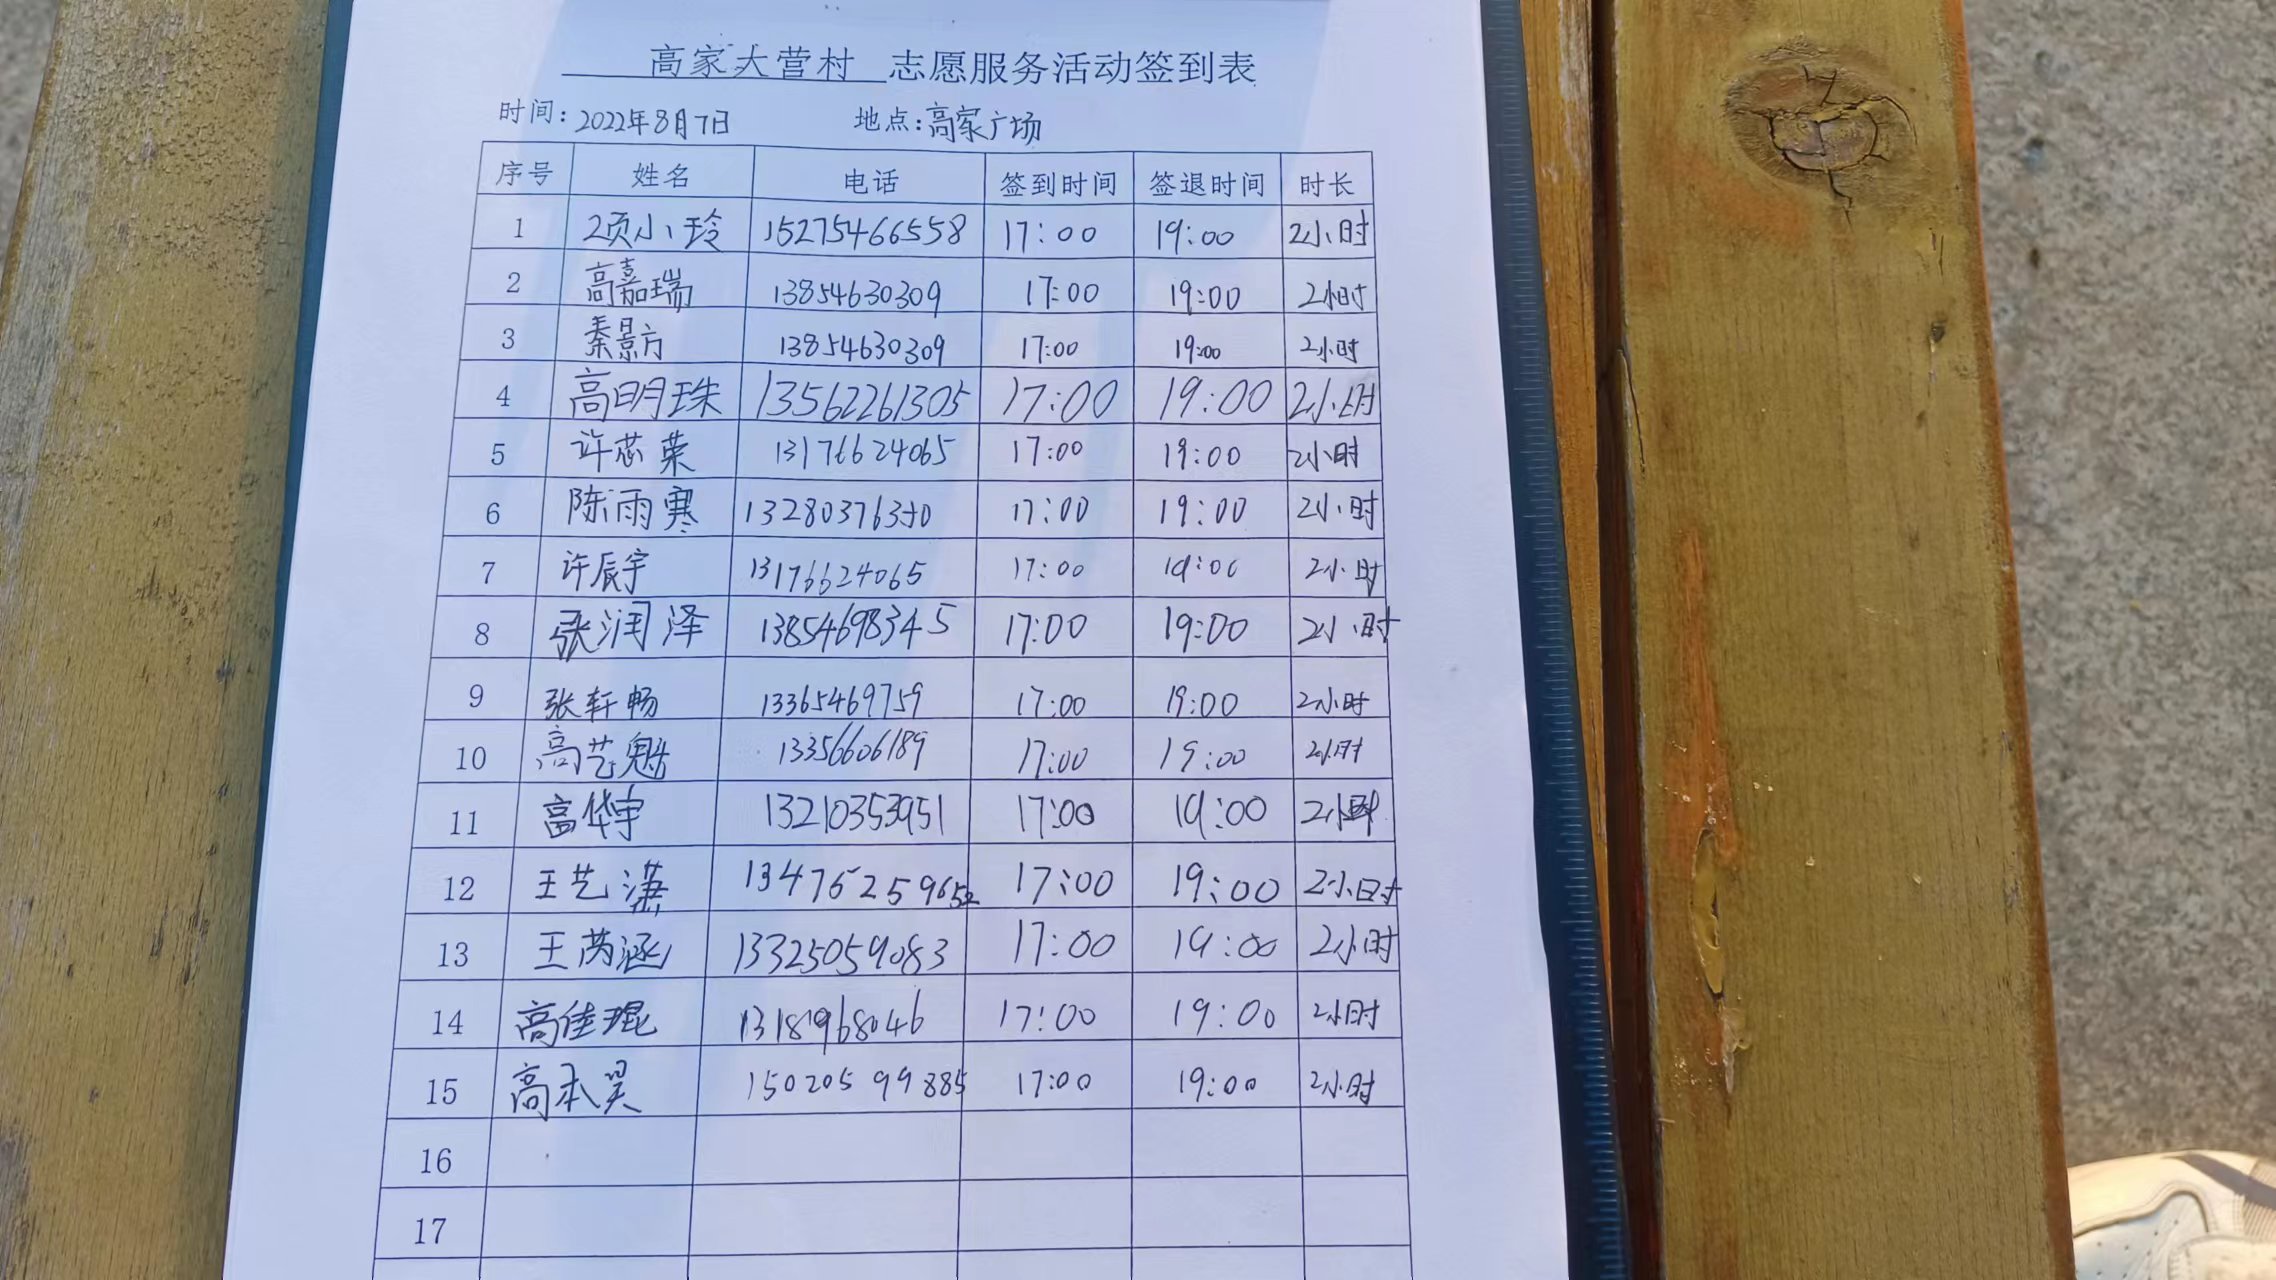 高家大营村 志愿服务活动签到表
时间: 2022年8月7日 地点: 高家广场
序号 姓名 电话 签到时间 签退时间 时长
1 项小玲 15275466558 17:00 19:00 2小时
2 高嘉瑞 13854630309 17:00 19:00 2小时
3 秦景方 13854630309 17:00 19:00 2小时
4 高明珠 13562261305 17:00 19:00 2小时
5 许芯荣 13176624065 17:00 19:00 2小时
6 陈雨寒 13280376350 17:00 19:00 2小时
7 许辰宇 13176624065 17:00 19:00 2小时
8 张润泽 13854698345 17:00 19:00 2小时
9 张轩畅 13365469759 17:00 19:00 2小时
10 高艺魁 13356606189 17:00 19:00 2小时
11 高华宇 13210353951 17:00 19:00 2小时
12 王艺潇 17:00 19:00 2小时
13 王芮涵 13325059083 17:00 19:00 2小时
14 高佳琨 13189968046 17:00 19:00 2小时
15 高本昊 15020599885 17:00 19:00 2小时
16
17